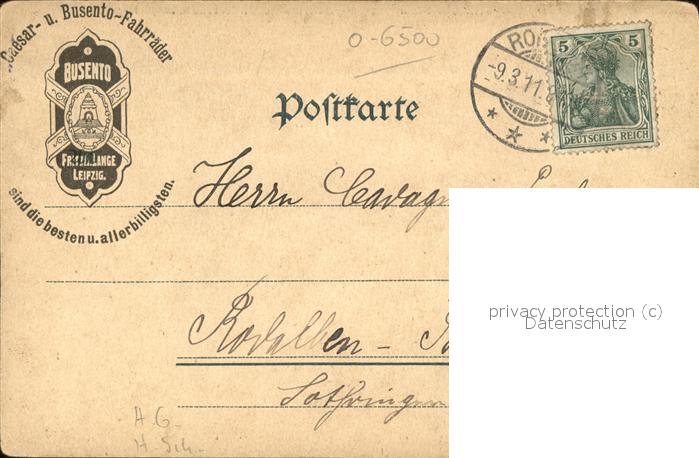 Caesar- u. Busento-Fahrräder
BUSENTO
LANGE
LEIPZIG.
sind die besten u. allerbilligsten.
O-6500
Postkarte
-9.3.11.
5 5
DEUTSCHES REICH
Herrn
Rodalben -
Lothringen
A G.
H-Sch.
privacy protection (c)
Datenschutz